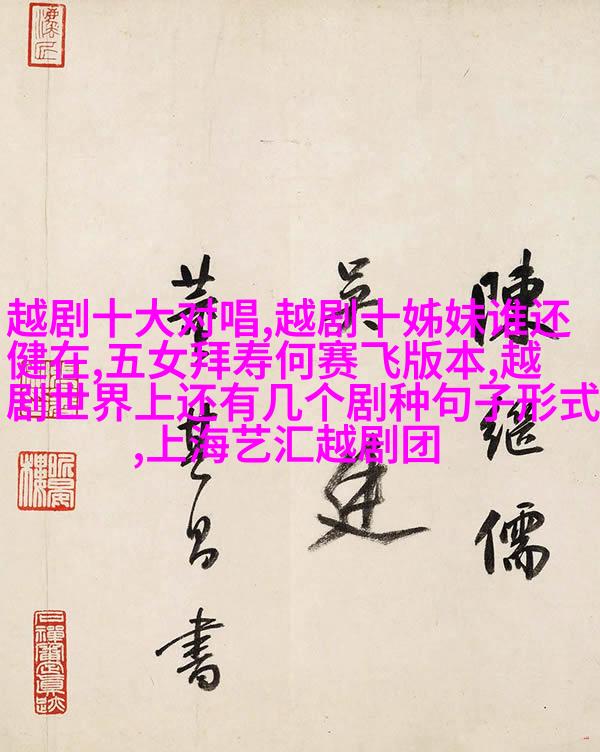 越剧十大对唱,越剧十姊妹谁还
健在,五女拜寿何赛飞版本,越
剧世界上还有几个剧种句子形式
,上海艺汇越剧团
陳繼儒
吴廷
董其昌書